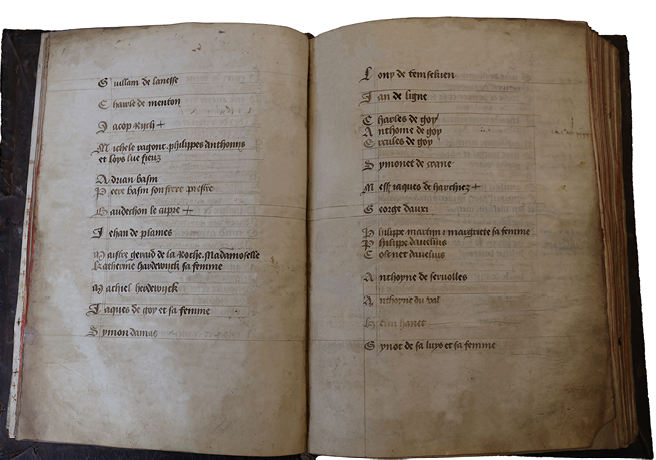 Guillam de lanesse
Charle de menton
Jacop Rych +
Michele ragont philippes Anthonys
et loys lue fieux
Adrian basin
Pere basin son frere prestre
Baudechon le cupre +
Jehan de plames
Maistre geraud de la Rothe Madamoselle
katherine hardewyck sa femme
Mathiel herdewyck
Jaques de goy et sa femme
Symon damas
Lony de temsekuen
Jan de ligne
Charles de goy
Anthonie de goy
Ercules de goy
Symonet de crane
Mess Jaques de harchiez +
George dauxi
Philippe martijn margriete sa femme
Philippe davelus
Colenet davelus
Anthoyne de seruolles
Anthoyne du val
hanet
Gynot de sa luys et sa femme